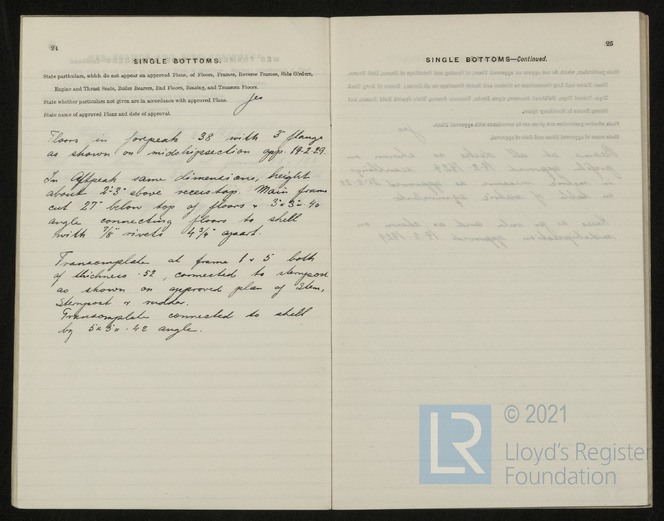 24
SINGLE BOTTOMS.
State particulars, which do not appear on approved Plans, of Floors, Frames, Reverse Frames, Side Girders,
Engine and Thrust Seats, Boiler Bearers, End Floors, Beaming, and Transom Floors.
State whether particulars not given are in accordance with approved Plans. Yes
State name of approved Plans and date of approval.
Floors in forepeak 38 with 3" flange
as shown on midshipsection app. 19.2.29.
In Aftpeak same dimensions, height
about 2'-3" above recess top. Main frame
cut 27" below top of floors & 3"x3"x.40
angle connecting floors to shell
with 7/8" rivets 4 3/4" apart.
Transomplate at frame 1 & 5 both
of thickness .52, connected to sternpost
as shown on approved plan of Stem,
Sternpost & rudder.
Transomplate connected to shell
by 5"x5"x.42 angle.
25
SINGLE BOTTOMS—Continued.
LR
© 2021
Lloyd's Register
Foundation